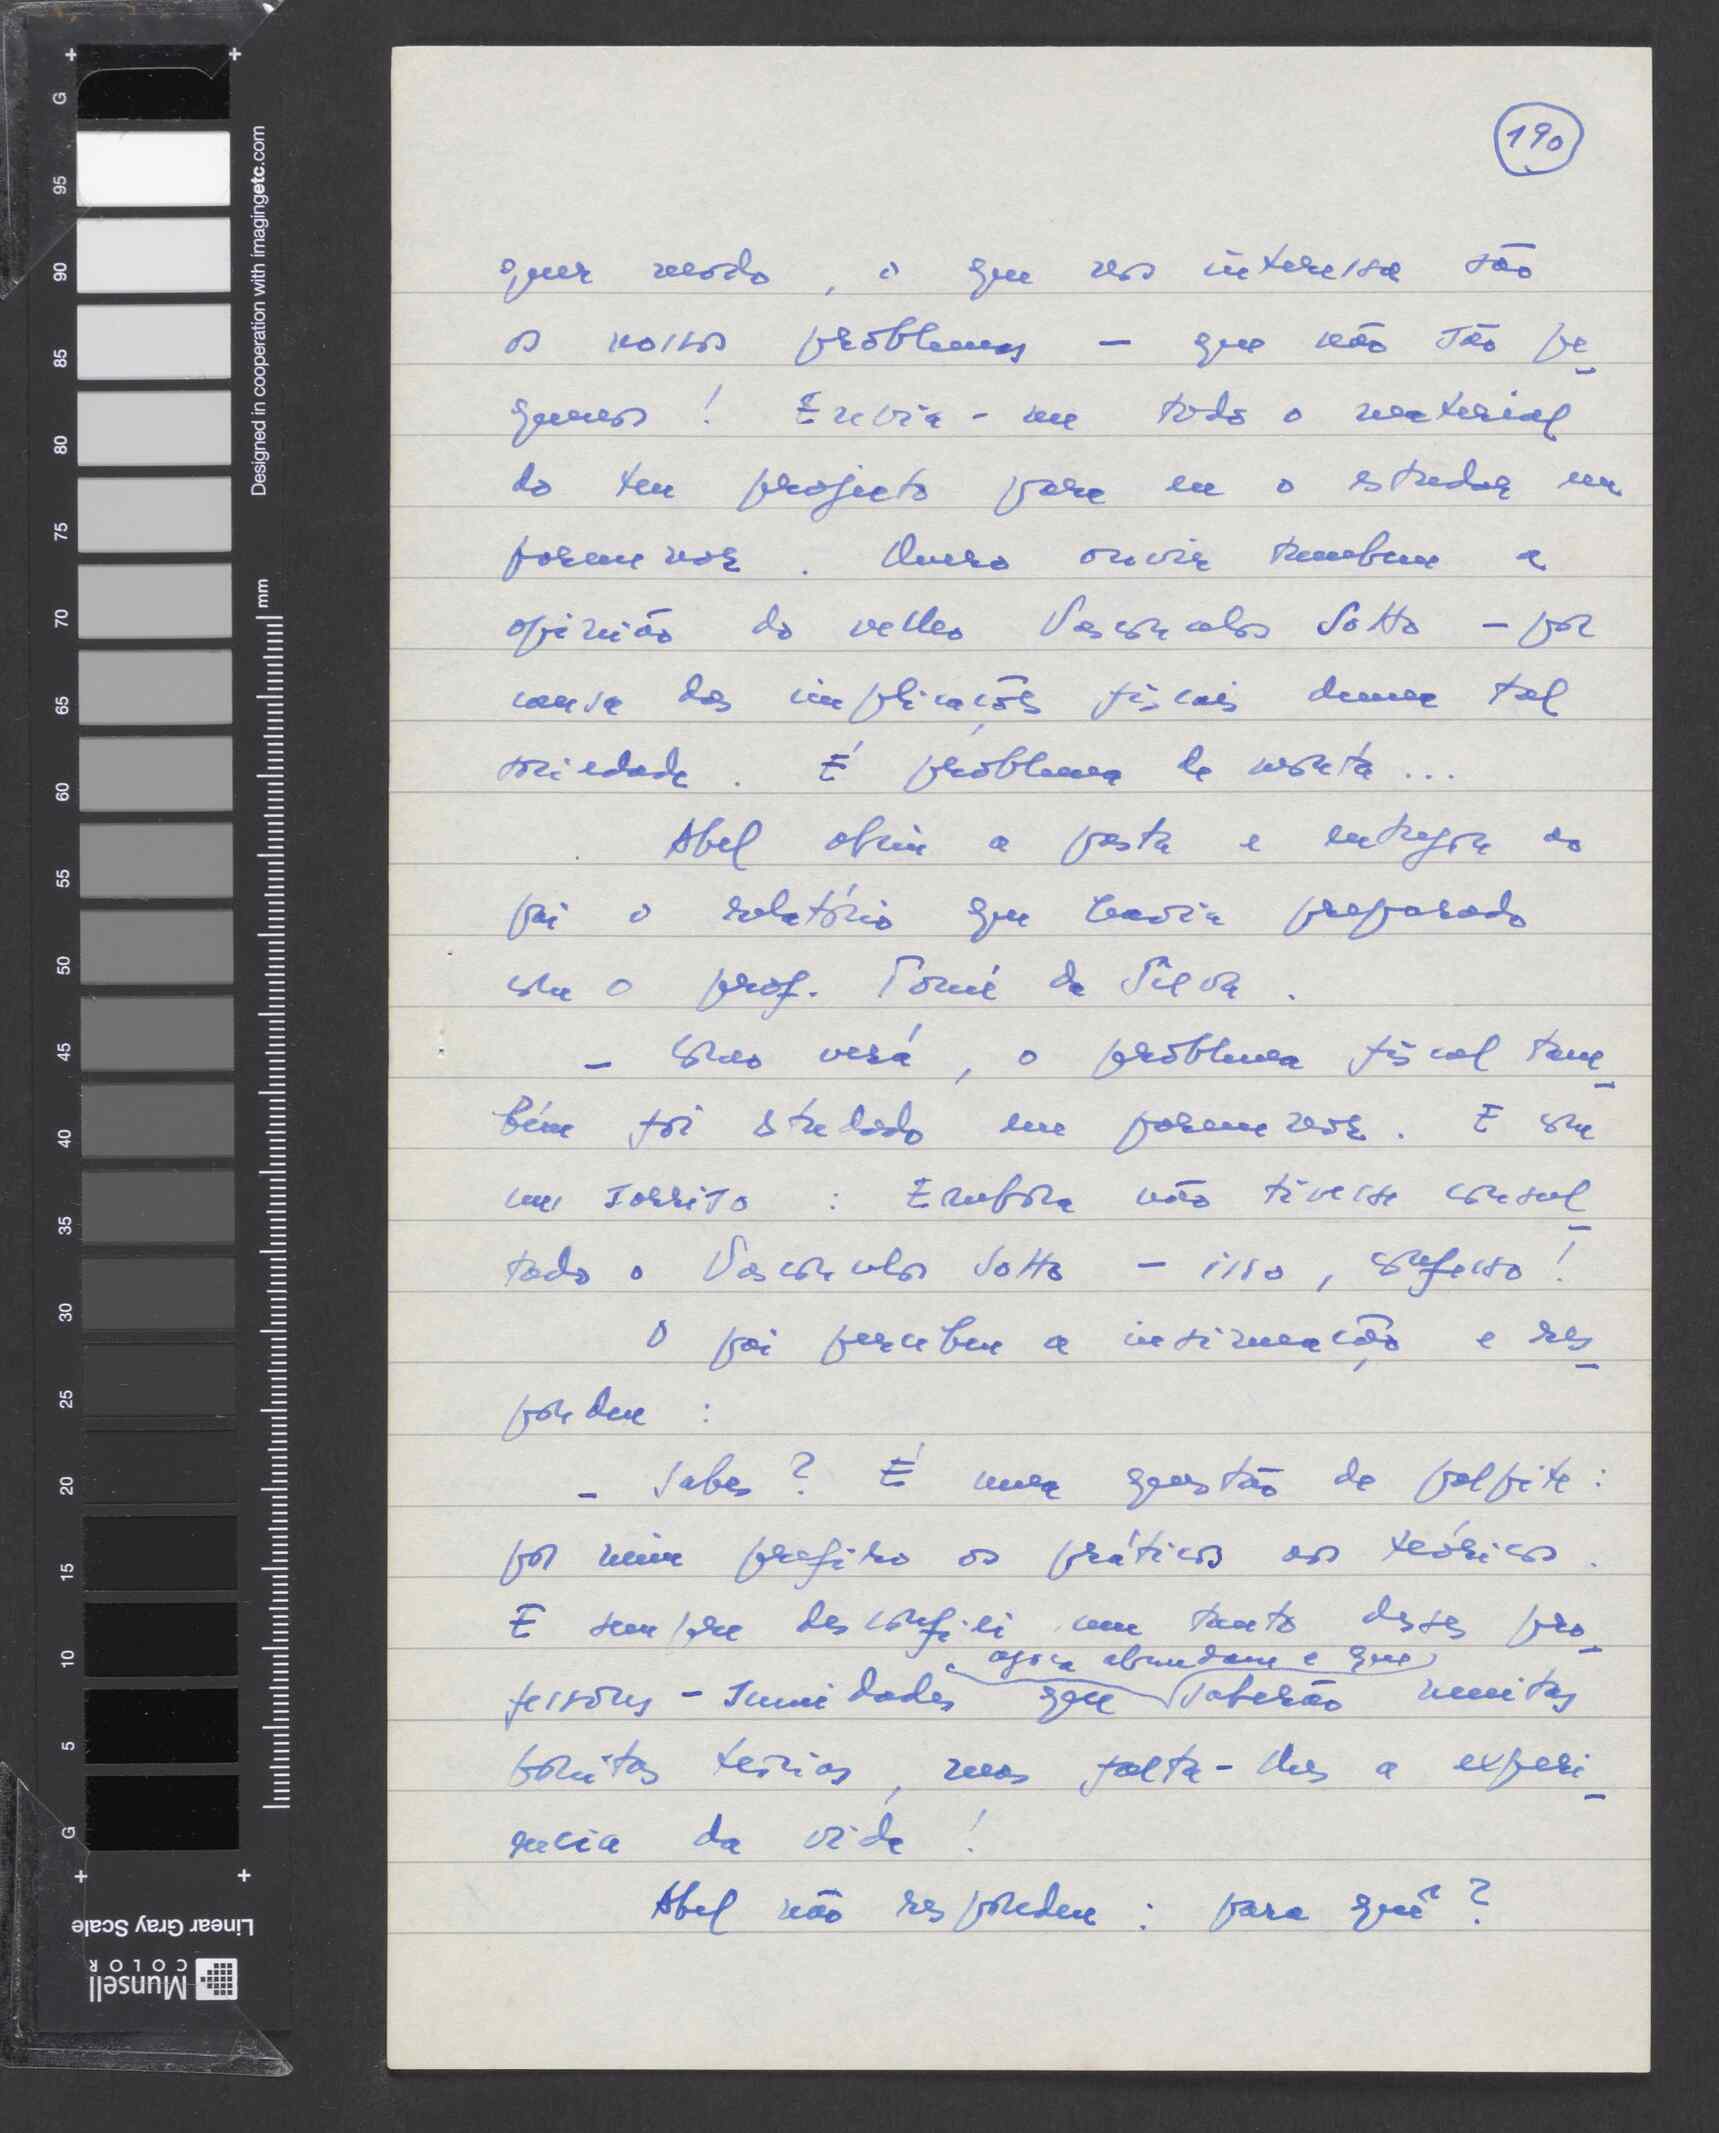 190
quer modo, o que nos interessa são
os nossos problemas – que não são pe
quenos! Envia-me todo o material
do teu projecto para eu o estudar em
pormenor. Quero ouvir também a
opinião do velho Vasconcelos Sotto – por
causa das implicações fiscais duma tal
sociedade. É problema de monta...
Abel abriu a pasta e entregou ao
pai o relatório que havia preparado
com o prof. Tomé da Silva.
– Como verá, o problema fiscal tam
bém foi estudado em pormenor. E com
um sorriso: Embora não tivesse consul
tado o Vasconcelos Sotto – isso, confesso!
O pai percebeu a insinuação e res
pondeu:
– Sabes? É uma questão de palpite:
por mim prefiro os práticos aos teóricos.
E sempre desconfiei um tanto desses pro
agora abundam e que
fessores-sumidades que saberão muitas
bonitas teorias, mas falta-lhes a experi
ência da vida!
Abel não respondeu: para quê?
Designed in cooperation with imagingetc.com
mm
G 95 90 85 80 75 70 65 60 55 50 45 40 35 30 25 20 15 10 5 G
Linear Gray Scale
Munsell
COLOR